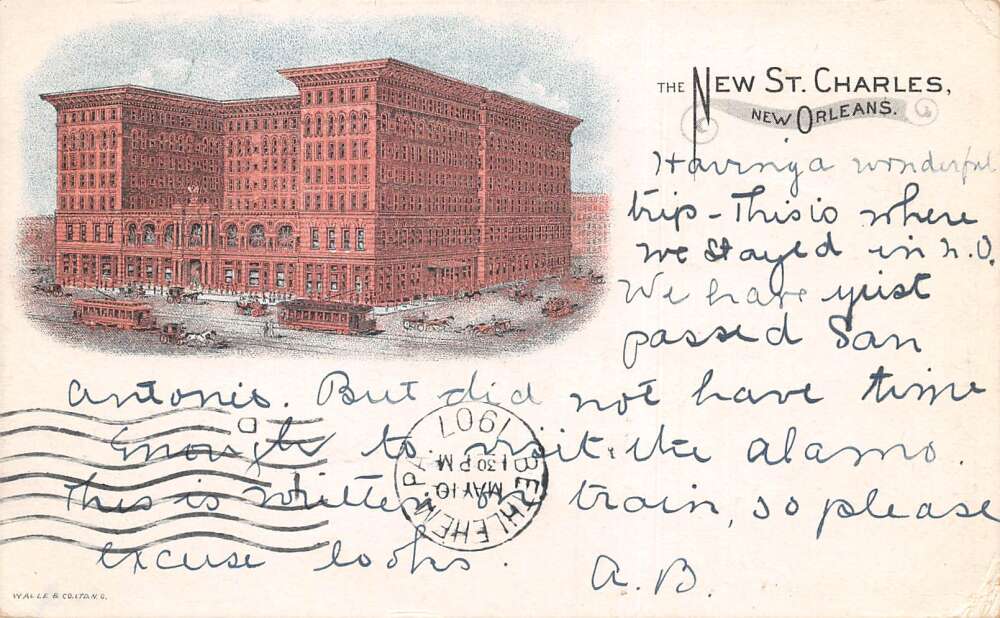 THE NEW ST. CHARLES,
NEW ORLEANS.
Having a wonderful
trip - This is where
we stayed in N.O.
We have just
passed San
Antonio. But did not have time
enough to visit the Alamo.
This is written on train, so please
excuse looks. A.B.
BETHLEHEM, PA.
MAY 10
1 30 PM
1907
D
WALLE & CO. LTD. N.O.